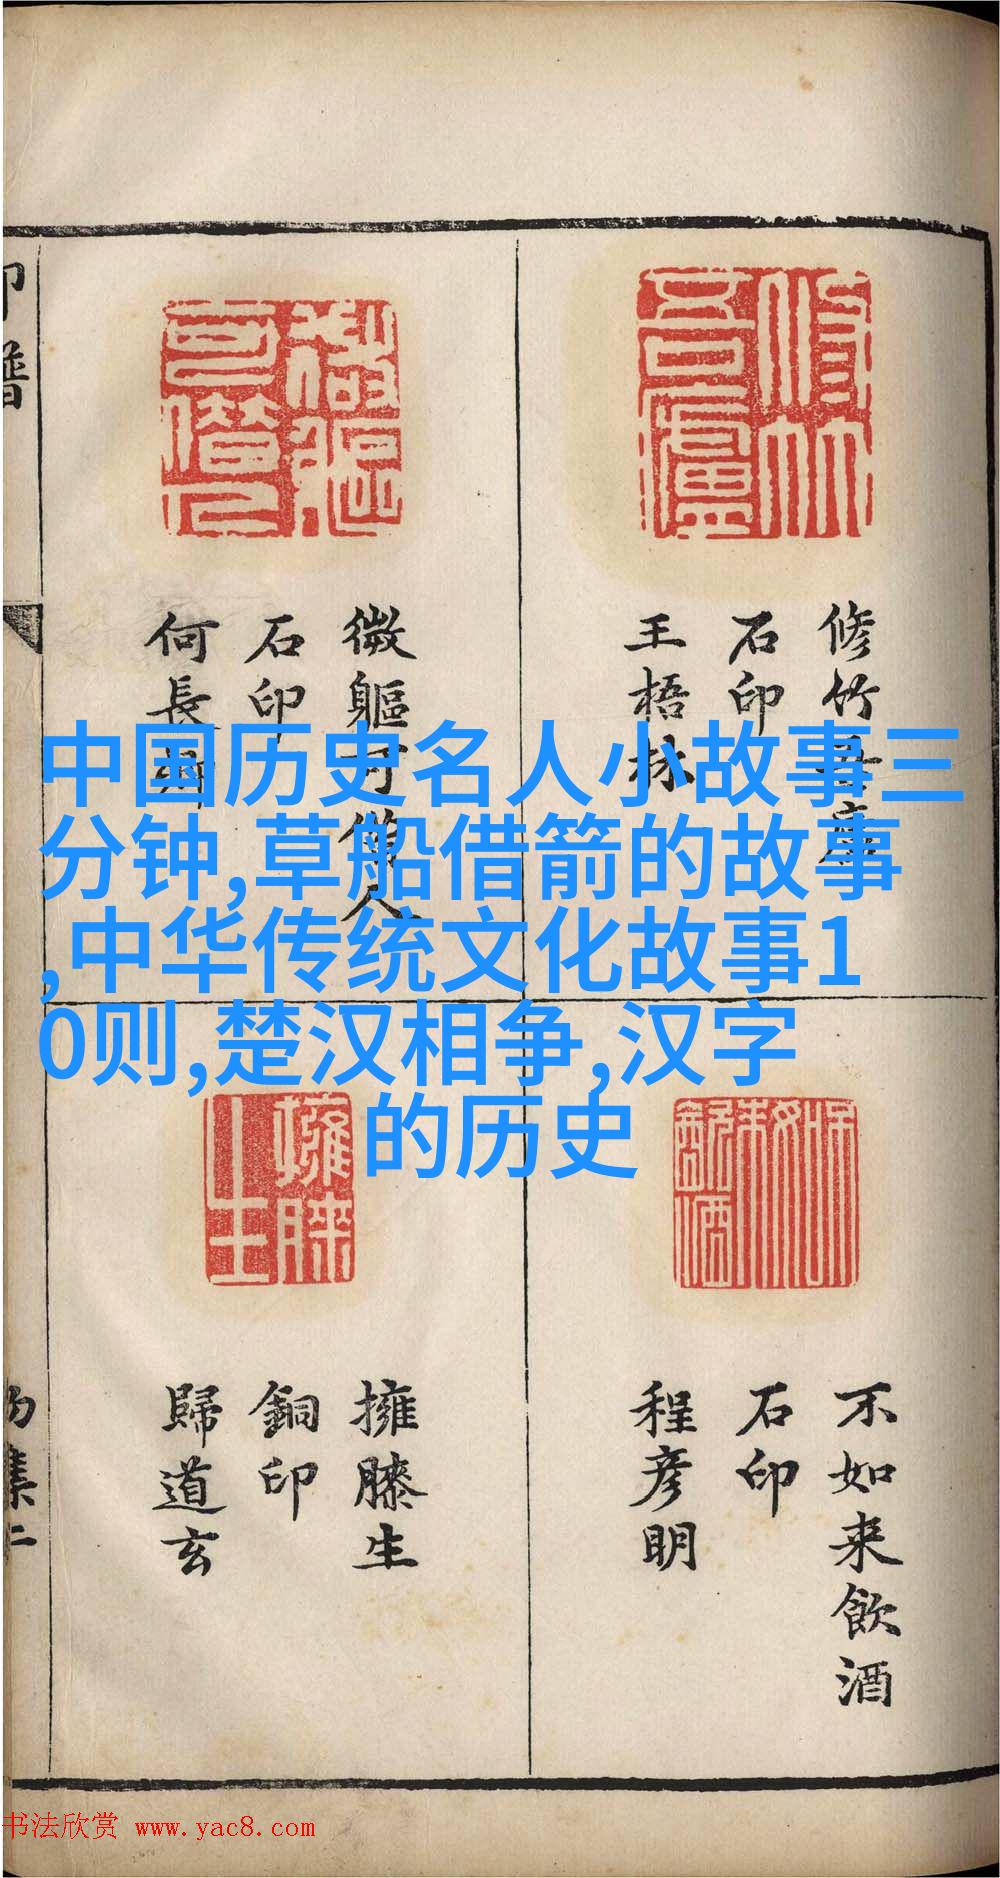 中国历史名人小故事三
分钟,草船借箭的故事
,中华传统文化故事1
0则,楚汉相争,汉字
的历史
修竹吾廬
石印
王梧林
微軀可僧人
石印
何長
不如来飲酒
石印
程彦明
擁膝生
銅印
歸道玄
印譜
书法欣赏 www.yac8.com